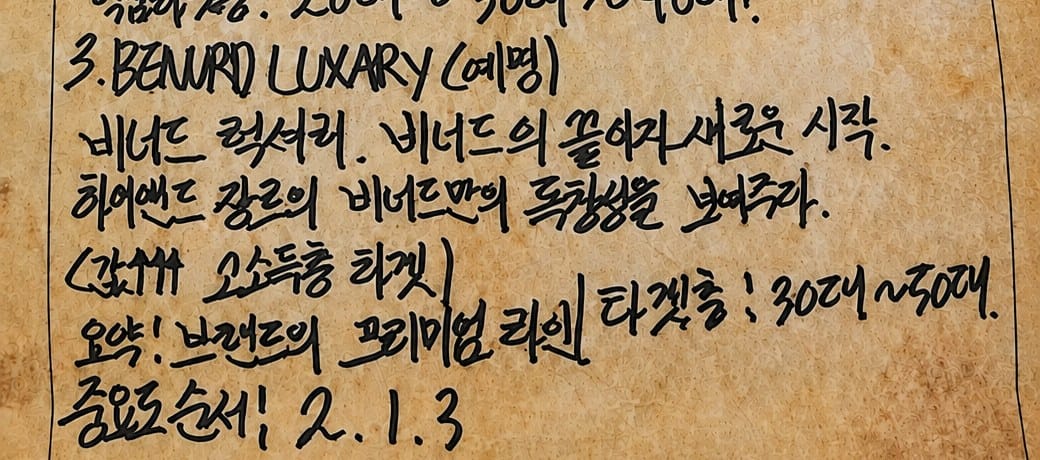 3. BENURD LUXARY (예명)
비너드 럭셔리. 비너드의 끝이자 새로운 시작.
하이앤드 장르의 비너드만의 독창성을 보여주다.
(값↑↑↑ 고소득층 타겟)
요약! 브랜드의 프리미엄 라인 타겟층! 30대~50대.
중요도 순서! 2. 1. 3